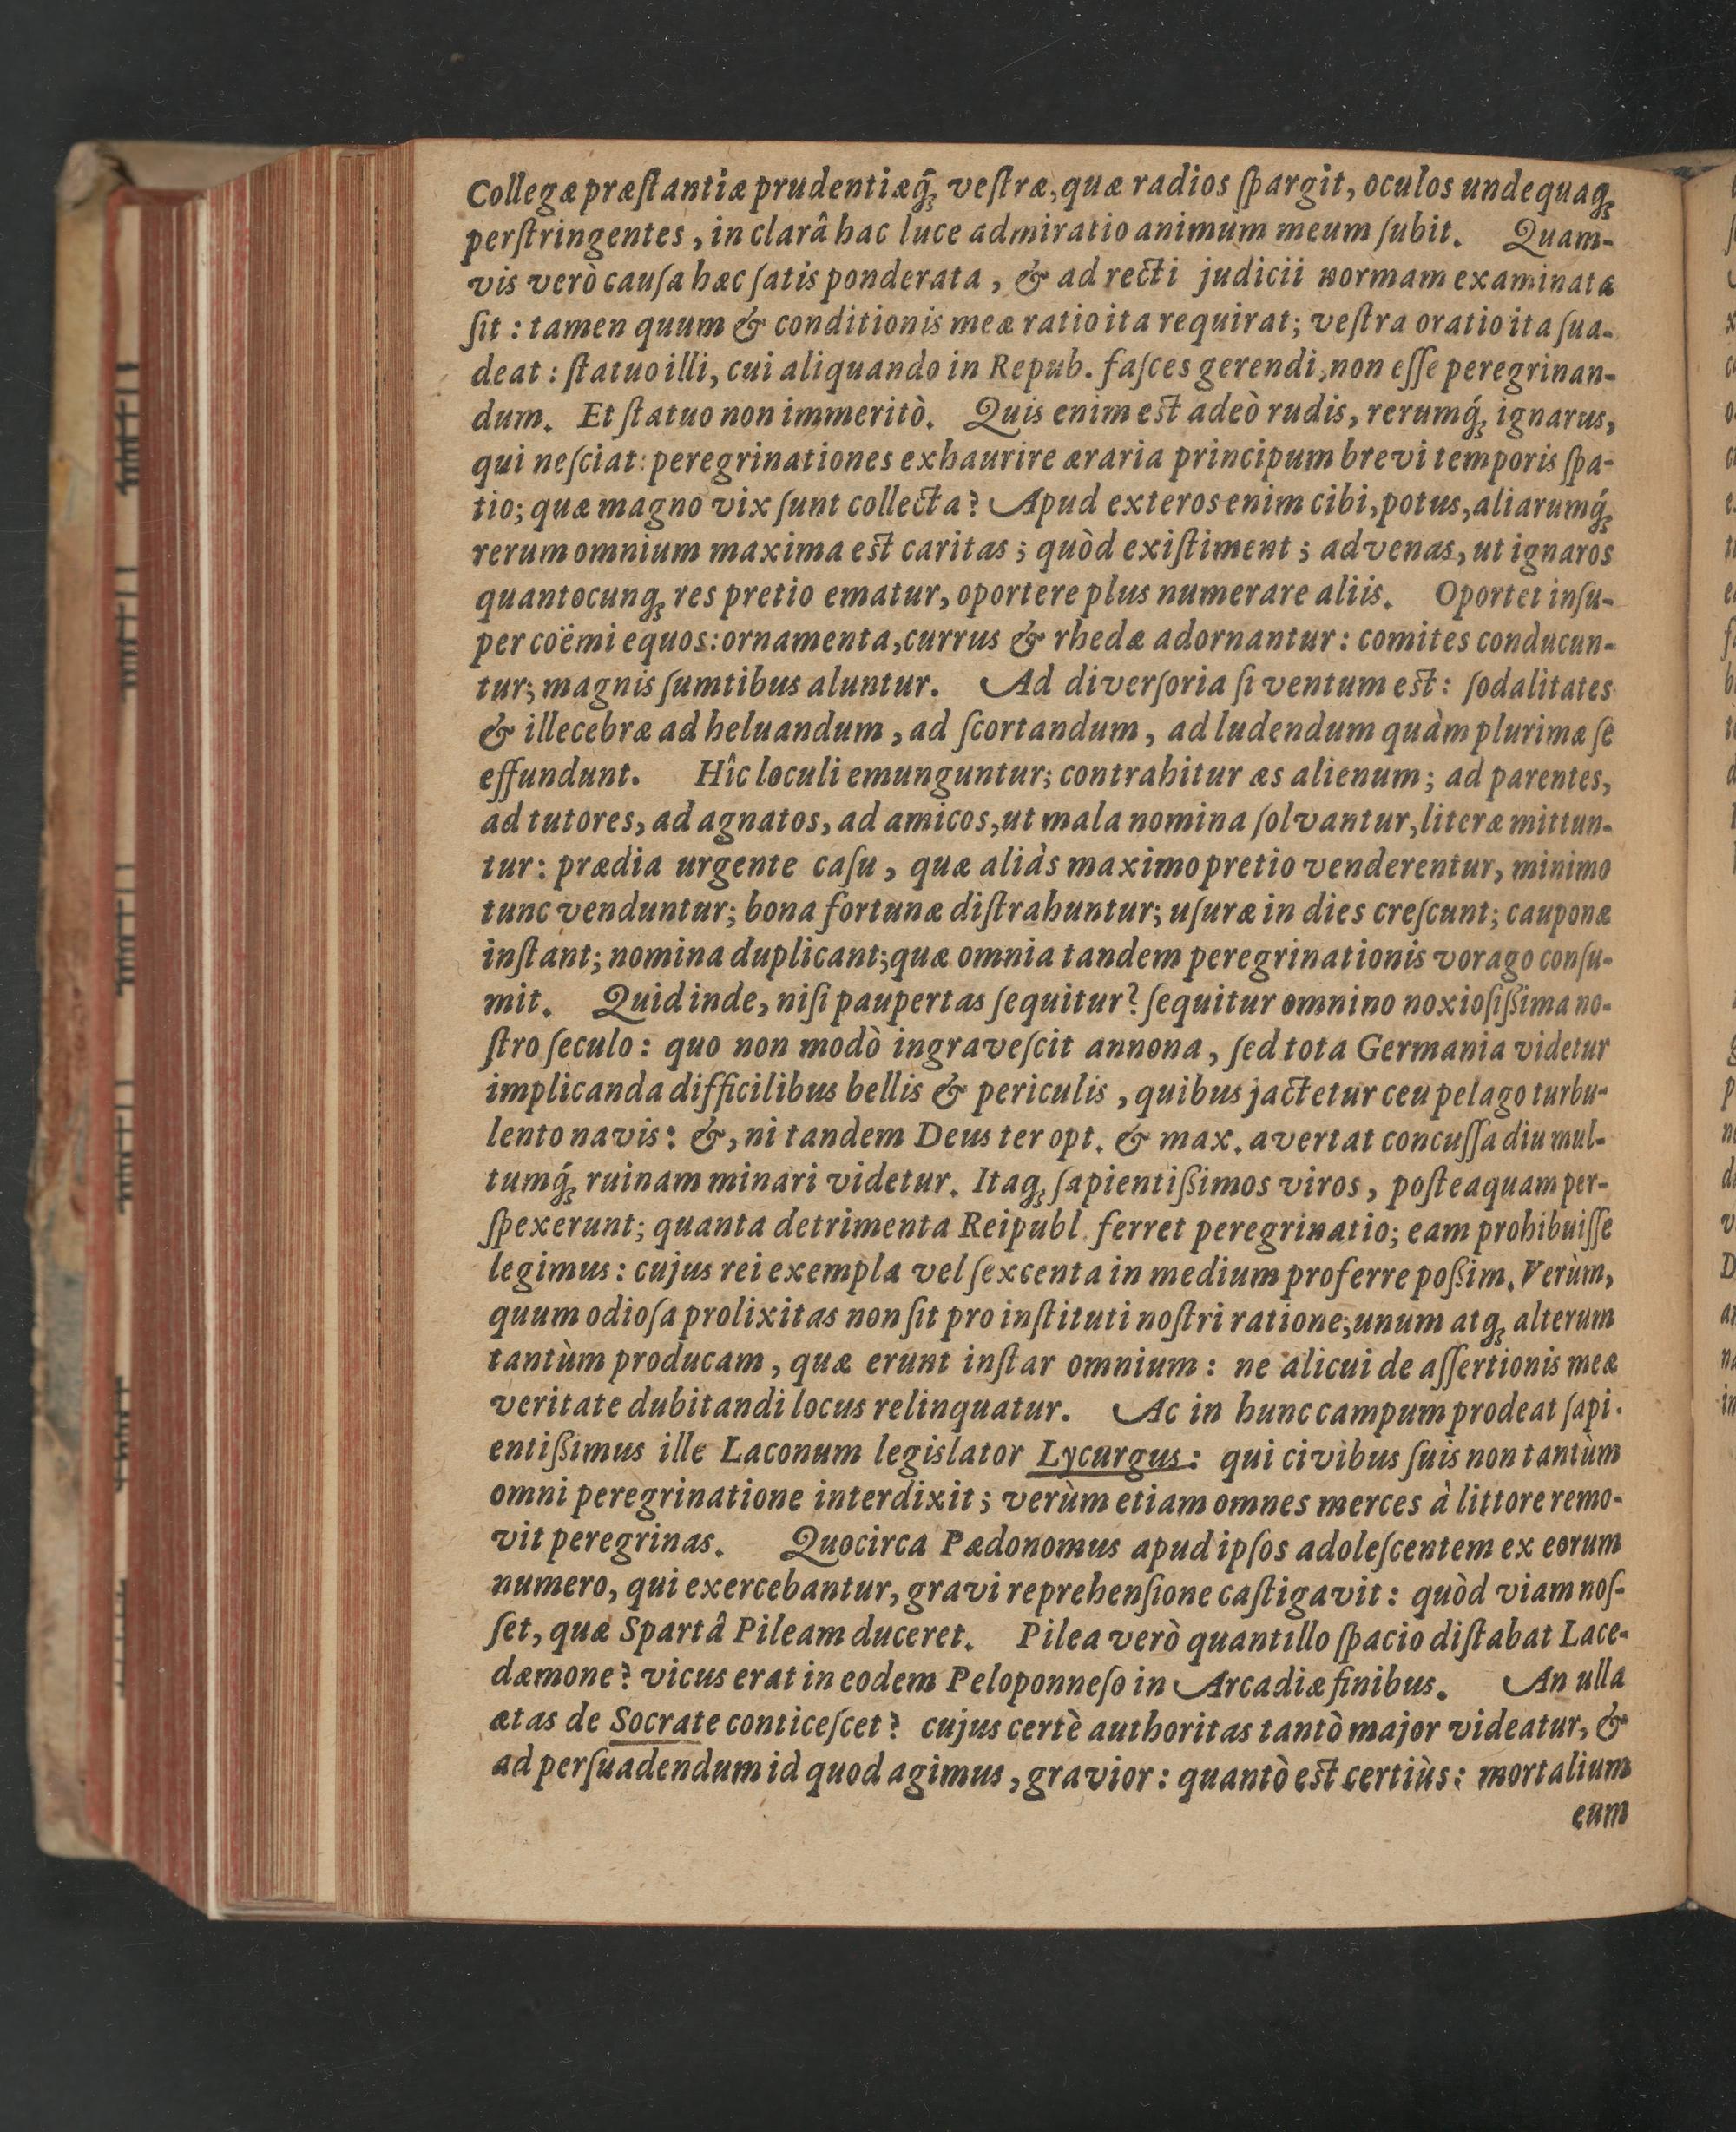 Collegæ præſtantiæ prudentiæq́ꝫ veſtræ, quæ radios ſpargit, oculos undequaqꝫ
perſtringentes, in clarâ hac luce admiratio animum meum ſubit. Quam-
vis verò cauſa hæc ſatis ponderata, & ad recti judicii normam examinata
ſit: tamen quum & conditionis meæ ratio ita requirat; veſtra oratio ita ſua-
deat: ſtatuo illi, cui aliquando in Repub. faſces gerendi, non eſſe peregrinan-
dum. Et ſtatuo non immeritò. Quis enim est adeò rudis, rerumq́ꝫ ignarus,
qui neſciat: peregrinationes exhaurire æraria principum brevi temporis ſpa-
tio; quæ magno vix ſunt collecta? Apud exteros enim cibi, potus, aliarumq́ꝫ
rerum omnium maxima est caritas; quòd exiſtiment; advenas, ut ignaros
quantocunqꝫ res pretio ematur, oportere plus numerare aliis. Oportet inſu-
per coëmi equos: ornamenta, currus & rhedæ adornantur: comites conducun-
tur; magnis ſumtibus aluntur. Ad diverſoria ſi ventum est: ſodalitates
& illecebræ ad heluandum, ad ſcortandum, ad ludendum quàm plurimæ ſe
effundunt. Hîc loculi emunguntur; contrahitur æs alienum; ad parentes,
ad tutores, ad agnatos, ad amicos, ut mala nomina ſolvantur, literæ mittun-
tur: prædia urgente caſu, quæ aliàs maximo pretio venderentur, minimo
tunc venduntur; bona fortunæ diſtrahuntur; uſuræ in dies creſcunt; cauponæ
inſtant; nomina duplicant; quæ omnia tandem peregrinationis vorago conſu-
mit. Quid inde, niſi paupertas ſequitur? ſequitur omnino noxioſißima no-
ſtro ſeculo: quo non modò ingraveſcit annona, ſed tota Germania videtur
implicanda difficilibus bellis & periculis, quibus jactetur ceu pelago turbu-
lento navis: &, ni tandem Deus ter opt. & max. avertat concuſſa diu mul-
tumq́ꝫ ruinam minari videtur. Itaqꝫ ſapientißimos viros, poſteaquam per-
ſpexerunt; quanta detrimenta Reipubl. ferret peregrinatio; eam prohibuiſſe
legimus: cujus rei exempla vel ſexcenta in medium proferre poßim. Verùm,
quum odioſa prolixitas non ſit pro inſtituti noſtri ratione; unum atqꝫ alterum
tantùm producam, quæ erunt inſtar omnium: ne alicui de aſſertionis meæ
veritate dubitandi locus relinquatur. Ac in hunc campum prodeat ſapi-
entißimus ille Laconum legislator Lycurgus: qui civibus ſuis non tantùm
omni peregrinatione interdixit; verùm etiam omnes merces à littore remo-
vit peregrinas. Quocirca Pædonomus apud ipſos adoleſcentem ex eorum
numero, qui exercebantur, gravi reprehenſione caſtigavit: quòd viam noſ-
ſet, quæ Spartâ Pileam duceret. Pilea verò quantillo ſpacio diſtabat Lace-
dæmone? vicus erat in eodem Peloponneſo in Arcadiæ finibus. An ulla
ætas de Socrate conticeſcet? cujus certè authoritas tantò major videatur, &
ad perſuadendum id quod agimus, gravior: quantò est certiùs: mortalium
eum